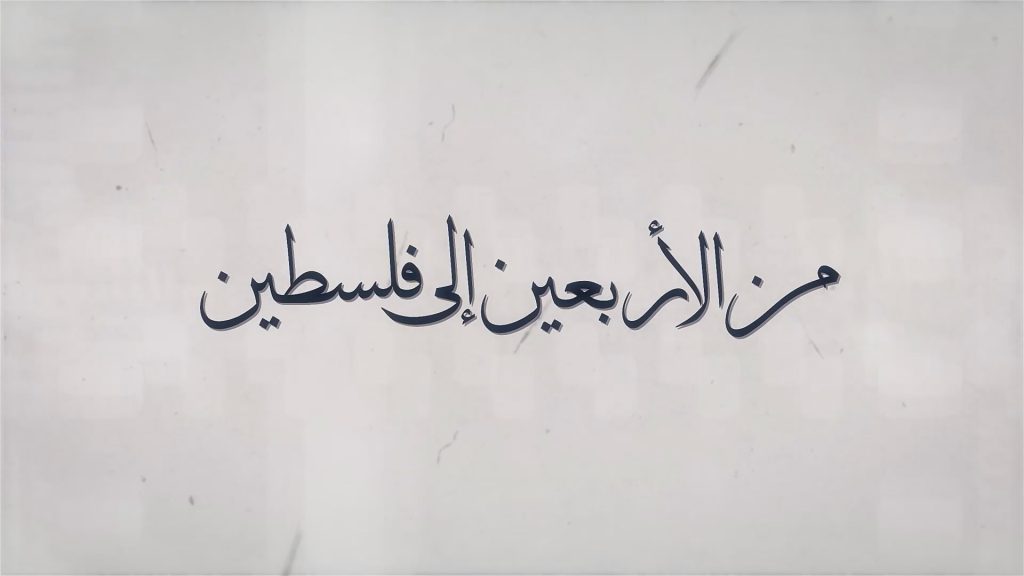 من الأربعين إلى فلسطين